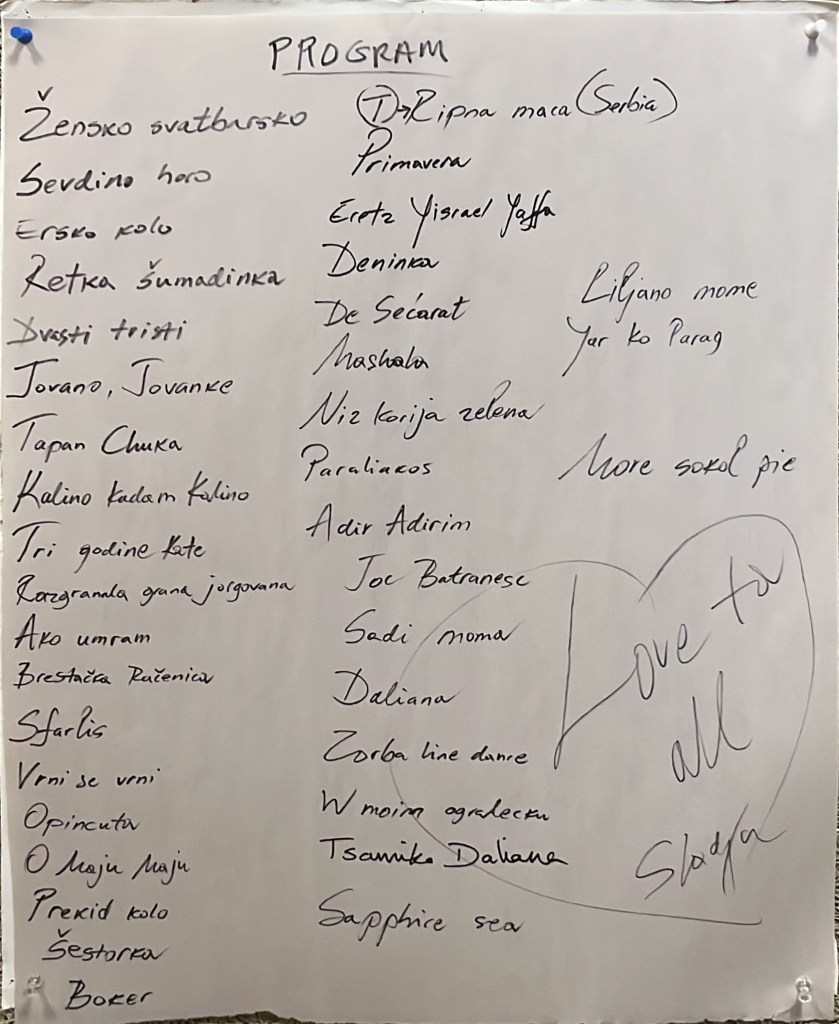 PROGRAM
Žensko svatbarsko
Sevdino horo
Ersko kolo
Retka šumadinka
Dvasti tristi
Jovano, Jovanke
Tapan Chuka
Kalino kadam Kalino
Tri godine Kate
Razgranala grana jorgovana
Ako umram
Brestačka Ručenica
Sfarlis
Vrni se vrni
Opincuta
O Maju Maju
Prekid kolo
Šestorka
Boker
(T)→Ripna maca (Serbia)
Primavera
Eretz Yisrael Yaffa
Deninka
De Sećarat
Mashala
Niz korija zelena
Paraliakos
Adir Adirim
Joc Batranesc
Sadi moma
Daliana
Zorba line dance
W moim ogrodecku
Tsamiko Daliana
Sapphire sea
Liljano mome
Yar ko Parag
More sokol pie
Love ta
all
Sladja